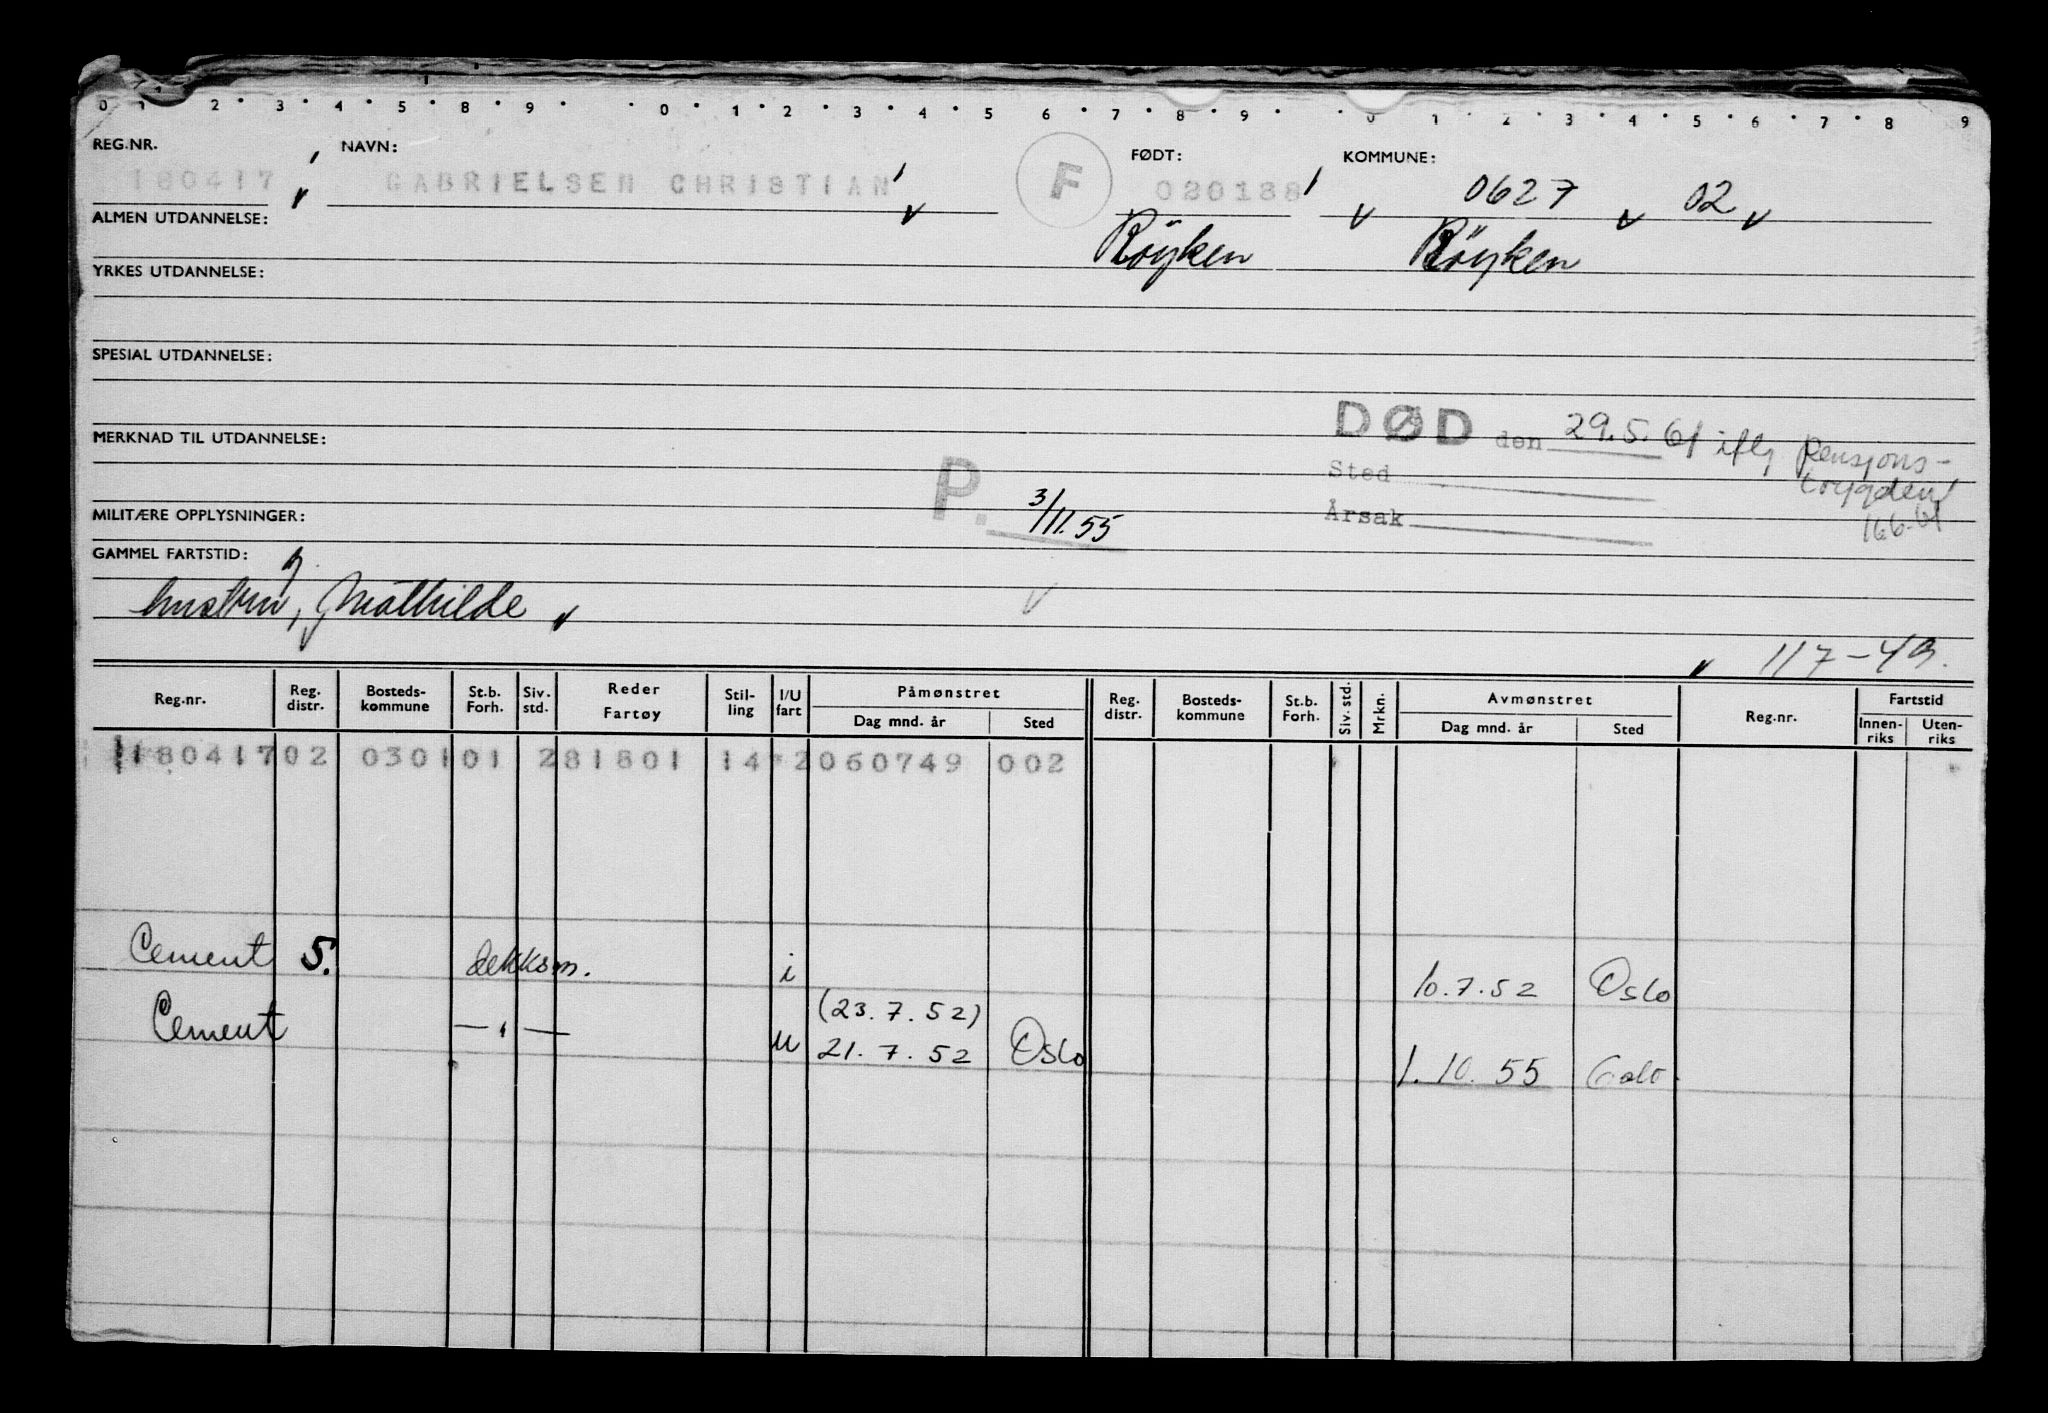 0 1 2 3 4 5 6 7 8 9 0 1 2 3 4 5 6 7 8 9 0 1 2 3 4 5 6 7 8 9
REG.NR. NAVN: FØDT: KOMMUNE:
180417 GABRIELSEN CHRISTIAN F 020188 0627 02
ALMEN UTDANNELSE: Röyken Röyken
YRKES UTDANNELSE:
SPESIAL UTDANNELSE:
MERKNAD TIL UTDANNELSE: DØD den 29.5.61 iflg Pensjons-
Sted trygden
MILITÆRE OPPLYSNINGER: P. 3/11.55 Årsak 16.6-61
GAMMEL FARTSTID:
hustru, Mathilde
117-49.
Reg.nr. Reg. distr. Bosteds-kommune St.b. Forh. Siv. std. Reder Fartøy Stil-ling I/U fart Påmønstret Dag mnd. år Sted Reg. distr. Bosteds-kommune St.b. Forh. Siv. std. Mrkn. Avmønstret Dag mnd. år Sted Reg.nr. Fartstid Innen-riks Uten-riks
18041702 030101 281801 14 2060749 002
Cement S. dekksm. i 10.7.52 Oslo
(23.7.52)
Cement — " — u 21.7.52 Oslo 1.10.55 Oslo